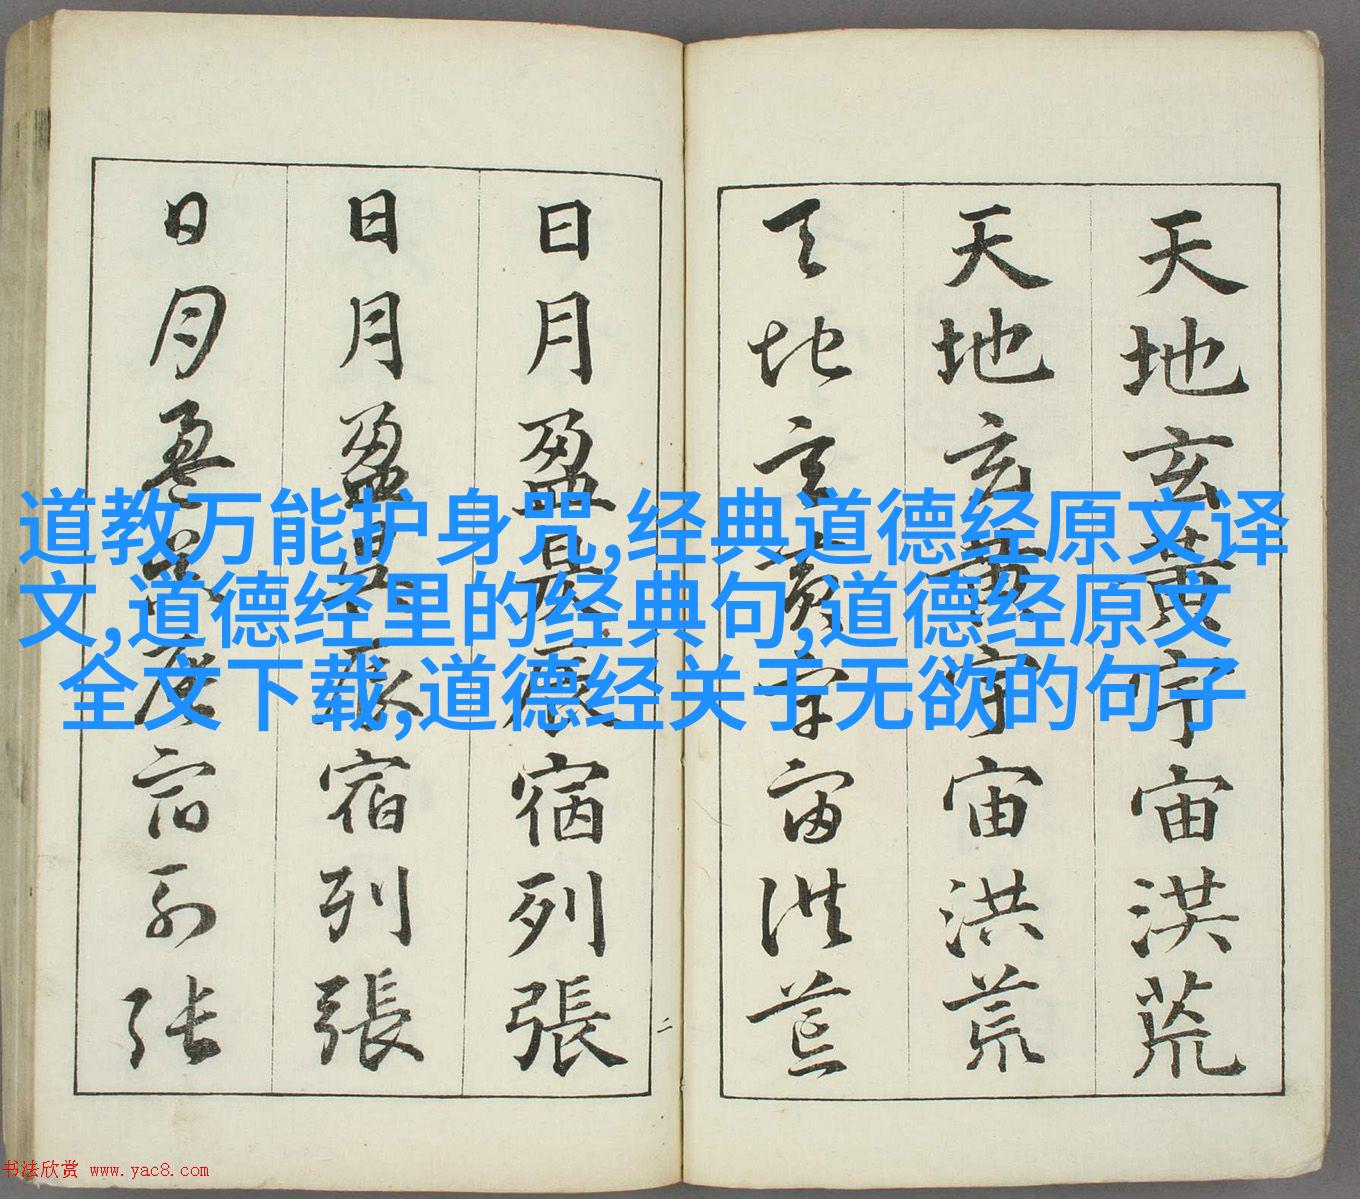 天地玄黄宇宙洪荒
天地玄黄宇宙洪荒
天地玄黄宇宙洪荒
日月盈昃辰宿列張
日月盈昃辰宿列張
日月盈昃辰宿列張
二
道教万能护身咒,经典道德经原文译
文,道德经里的经典句,道德经原文
全文下载,道德经关于无欲的句子
书法欣赏 www.yac8.com